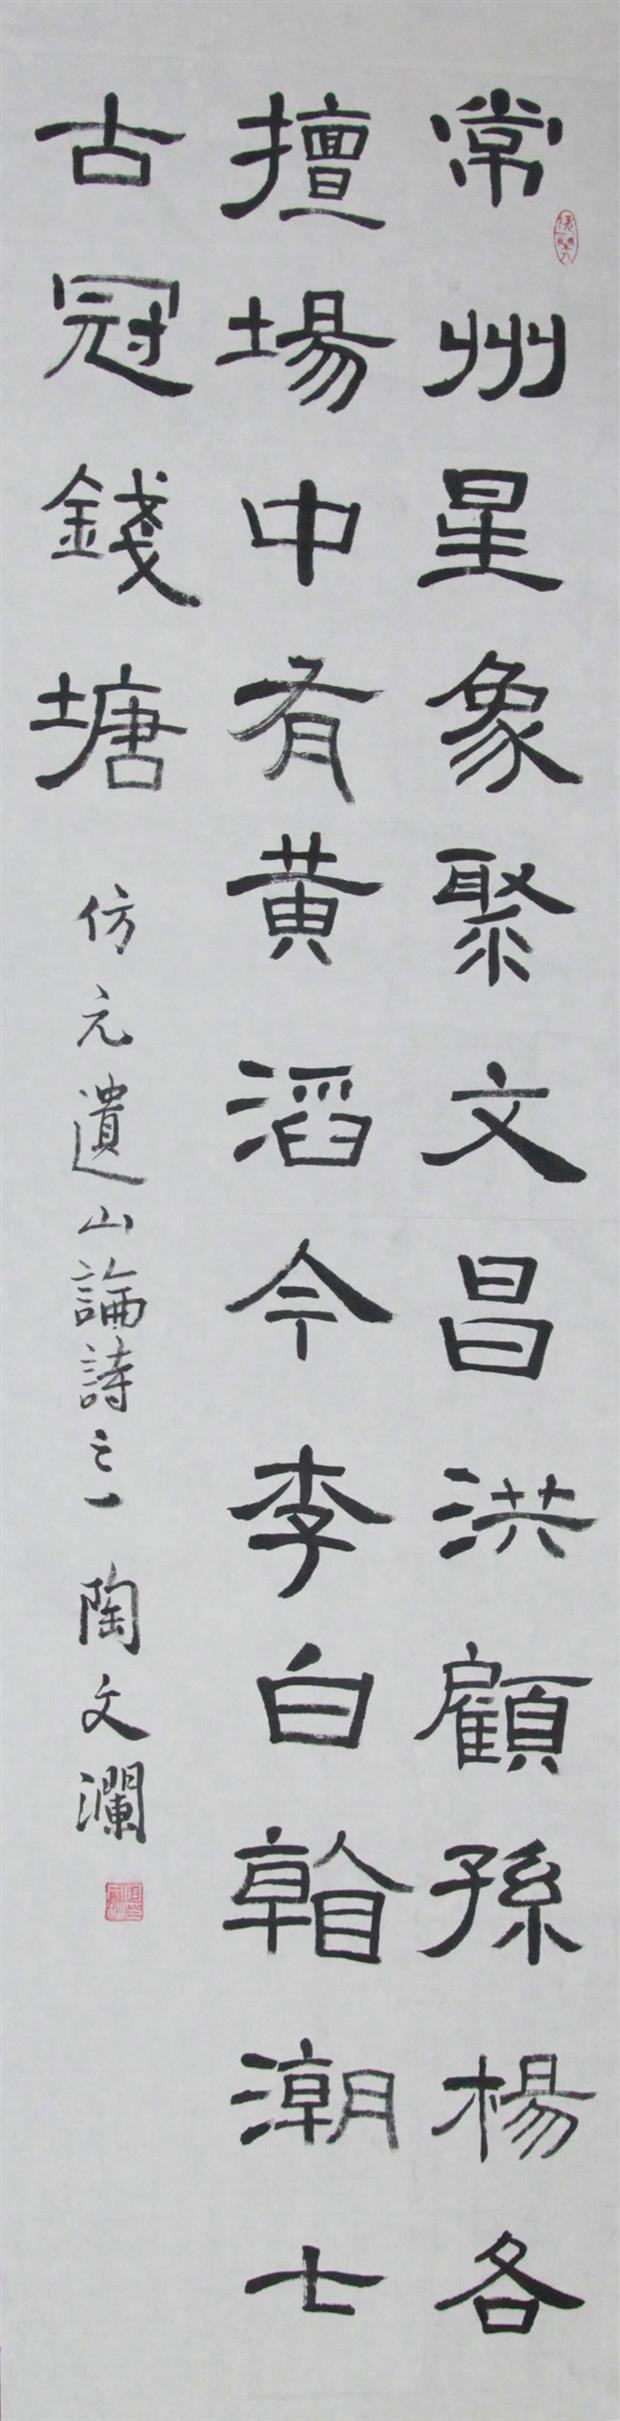 常州星象聚文昌洪顧孫楊各
擅場中有黃滔今李白看潮七
古冠錢塘
仿元遺山論詩之一 陶文瀾